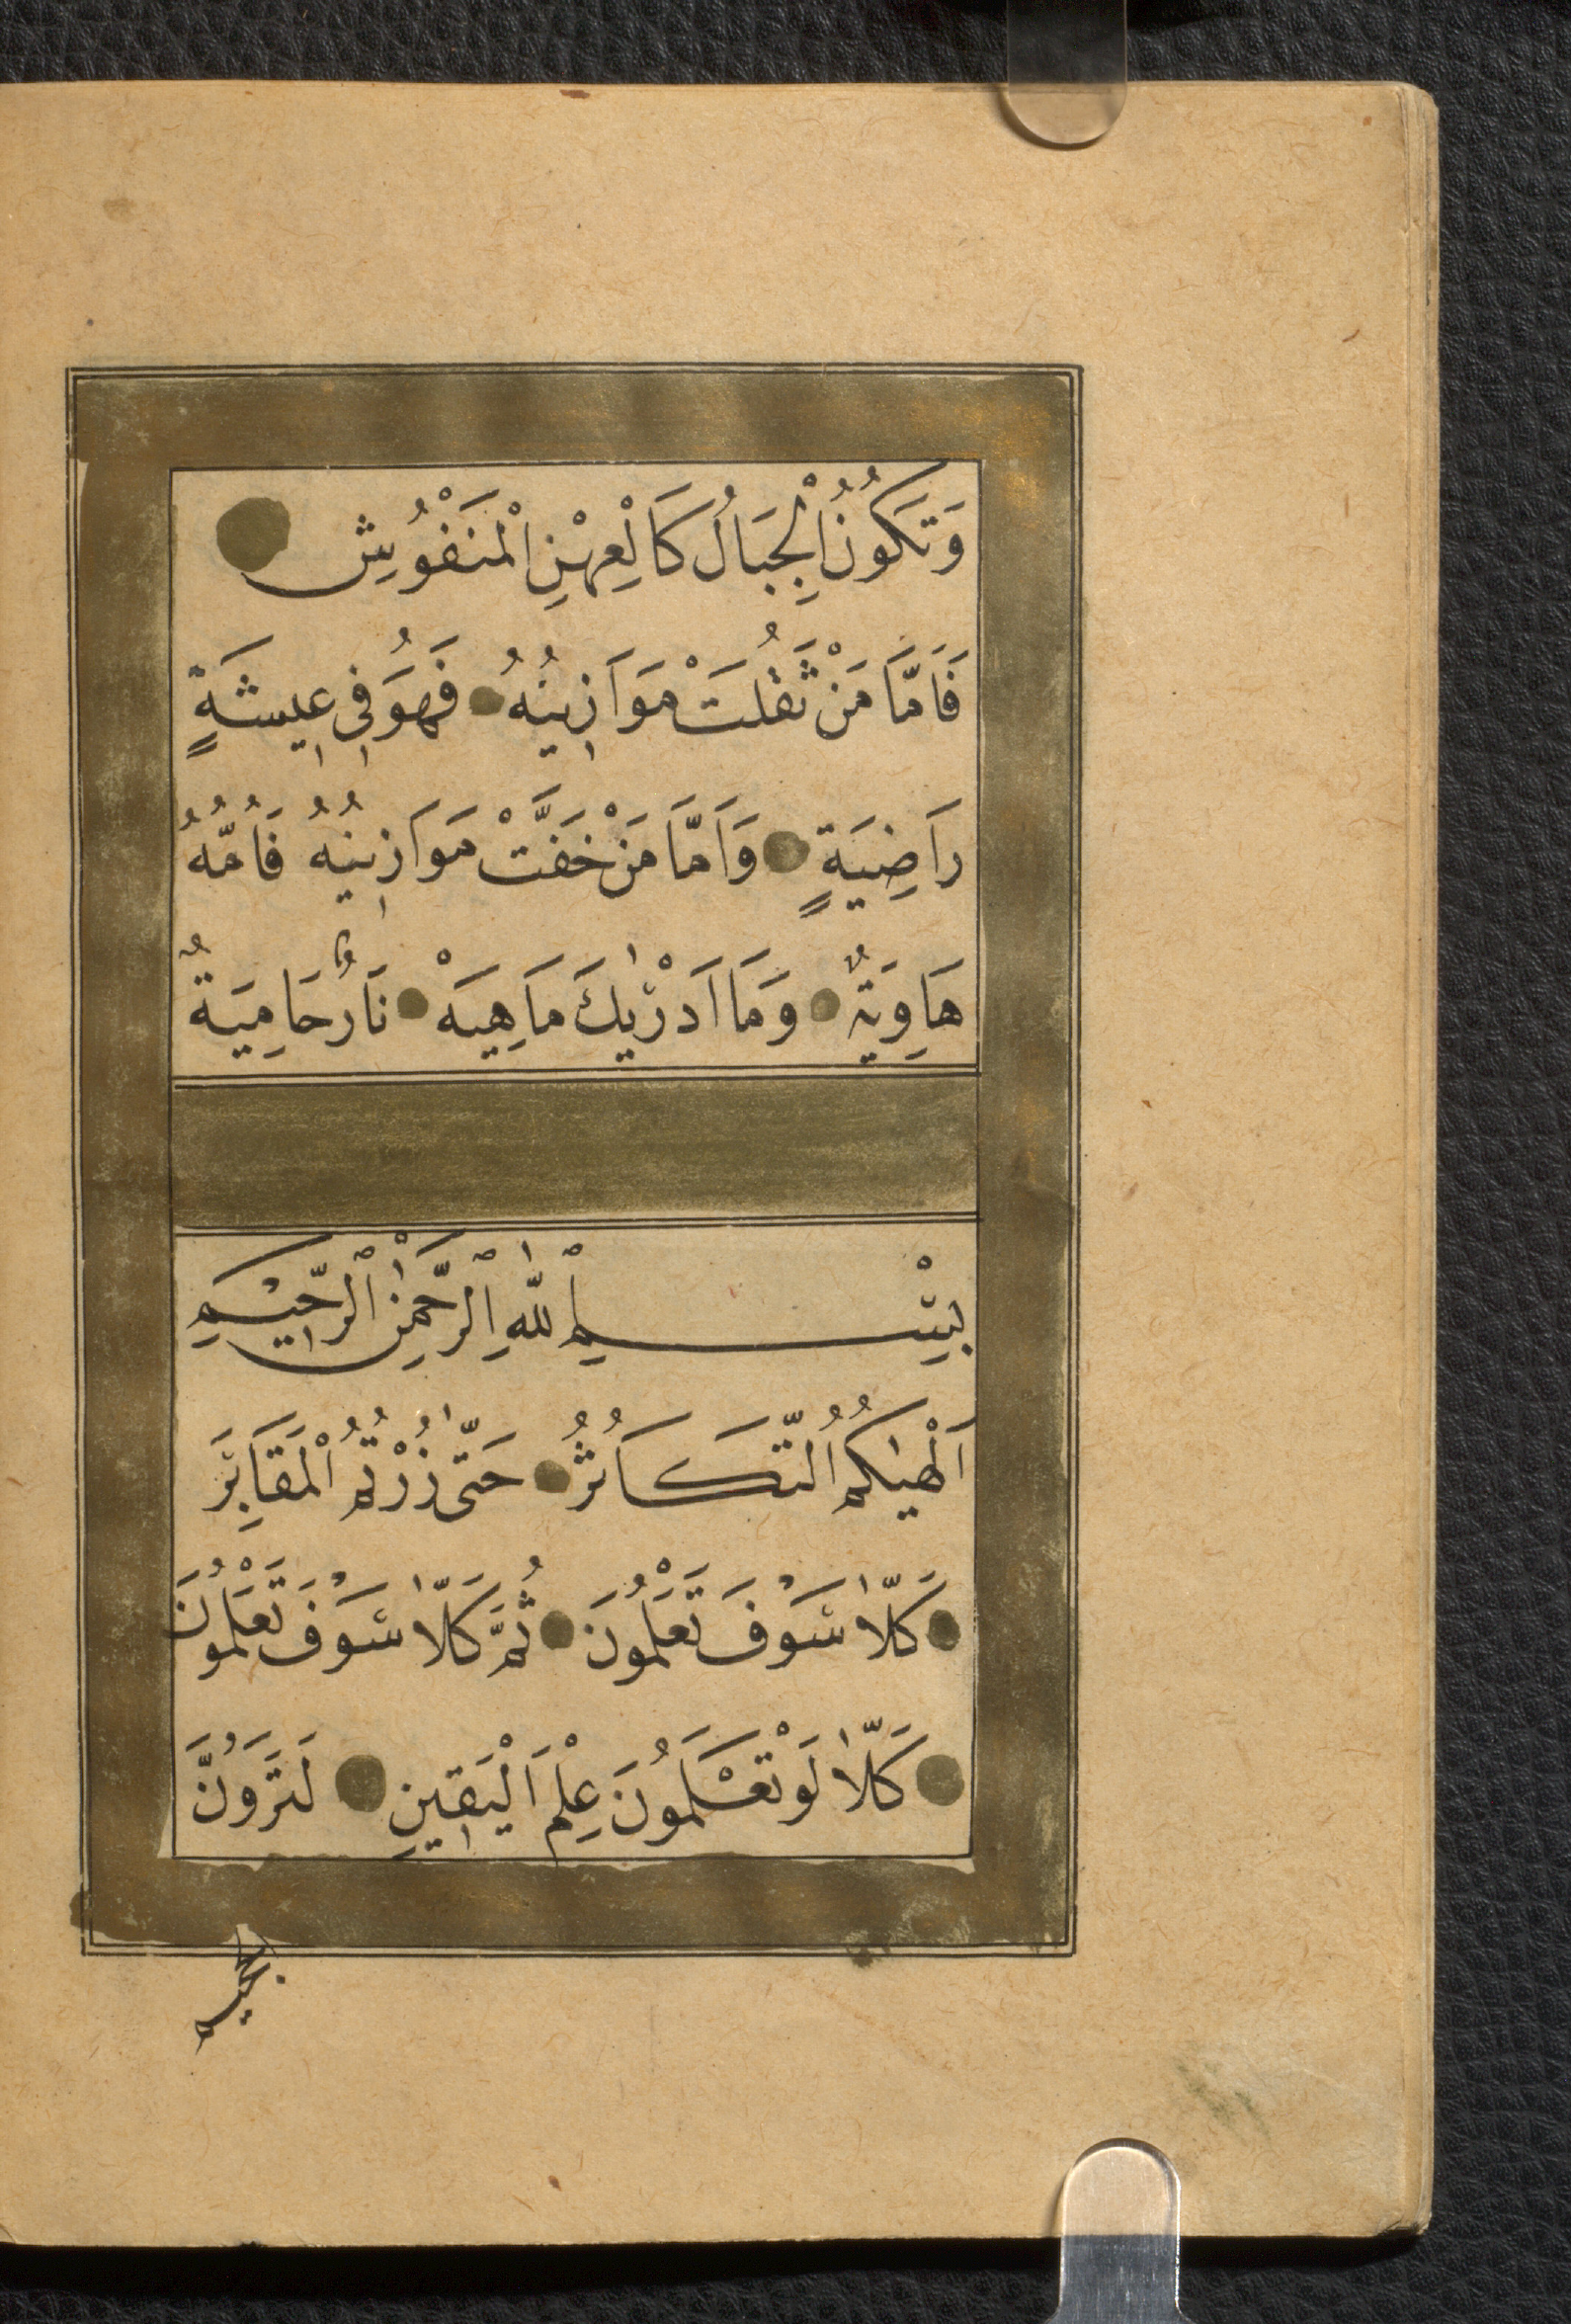 وَتَكُونُ الْجِبَالُ كَالْعِهْنِ الْمَنْفُوشِ
فَاَمَّا مَنْ ثَقُلَتْ مَوَازِينُهُ فَهُوَ فِي عِيشَةٍ
رَاضِيَةٍ وَاَمَّا مَنْ خَفَّتْ مَوَازِينُهُ فَاُمُّهُ
هَاوِيَةٌ وَمَا اَدْرٰيكَ مَاهِيَهْ نَارٌ حَامِيَةٌ
بِسْمِ اللّٰهِ الرَّحْمٰنِ الرَّحِيمِ
اَلْهٰيكُمُ التَّكَاثُرُ حَتّٰى زُرْتُمُ الْمَقَابِرَ
كَلّٰا سَوْفَ تَعْلَمُونَ ثُمَّ كَلّٰا سَوْفَ تَعْلَمُونَ
كَلّٰا لَوْ تَعْلَمُونَ عِلْمَ الْيَقِينِ لَتَرَوُنَّ
الجحيم